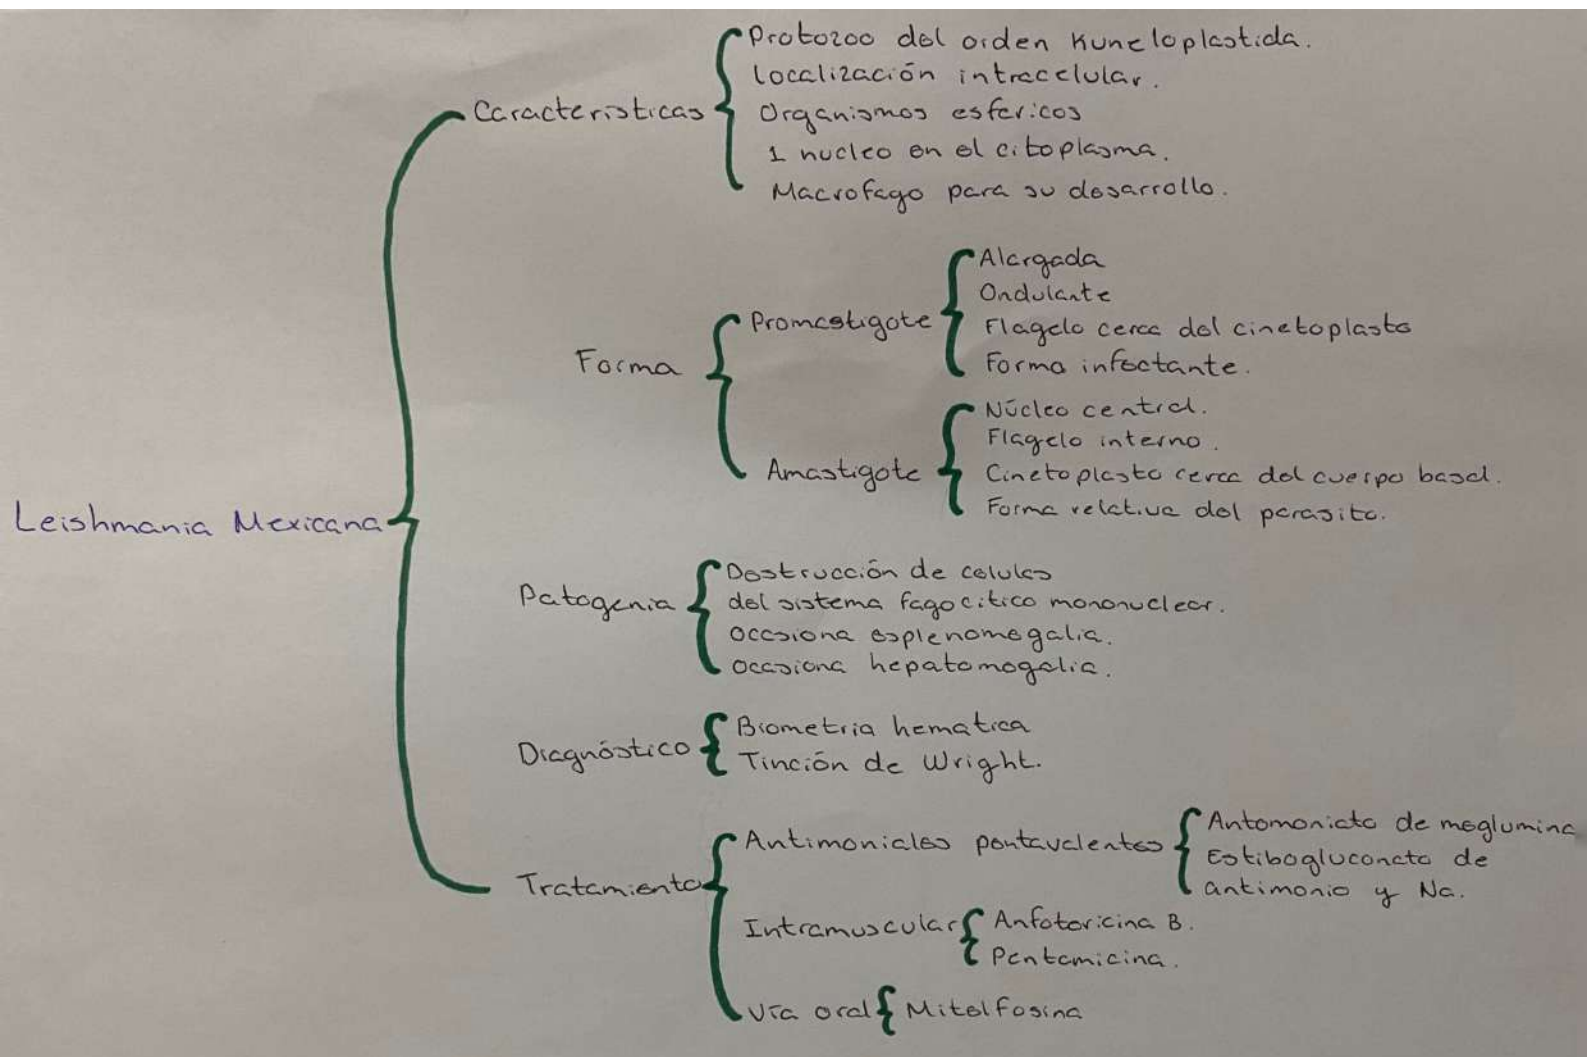 Leishmania Mexicana
Características
Protozoo del orden Kuneloplastida.
Localización intracelular.
Organismos esféricos
1 nucleo en el citoplasma.
Macrofago para su desarrollo.
Forma
Promastigote
Alargada
Ondulante
Flagelo cerca del cinetoplasto
Forma infectante.
Amastigote
Núcleo central.
Flagelo interno.
Cinetoplasto cerca del cuerpo basal.
Forma relativa del parasito.
Patogenia
Destrucción de celulas
del sistema fagocitico mononuclear.
Occasiona esplenomegalia.
Occasiona hepatomegalia.
Diagnóstico
Biometria hematica
Tinción de Wright.
Tratamiento
Antimoniales pentavalentes
Antomoniato de meglumina
Estibogluconato de
antimonio y Na.
Intramuscular
Anfotericina B.
Pentamicina.
Vía oral
Mitelfosina